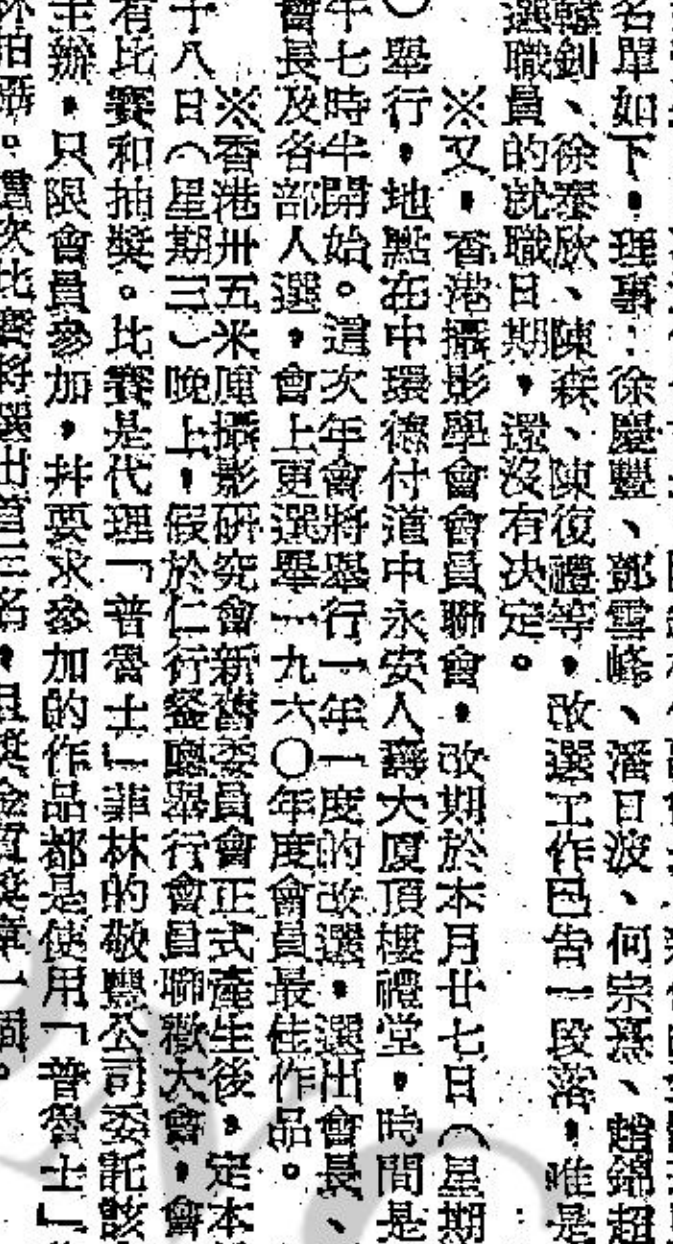 名單如下，理事：徐慶豐、鄧雪峰、潘日波、何宗熹、趙錦超
釗、徐泰欣、陳森、陳復禮等，改選工作已告一段落，唯是
選職員的就職日期，還沒有決定。
※又，香港攝影學會會員聯會，改期於本月廿七日（星期
）舉行，地點在中環德付道中永安人壽大廈頂樓禮堂，時間是
午七時半開始。這次年會將舉行一年一度的改選，選出會長、
會長及各部人選，會上更選舉一九六〇年度會員最佳作品。
※香港卅五米厘攝影研究會新舊委員會正式產生後，定本
十八日（星期三）晚上，假於仁行餐廳舉行會員聯歡大會，會
有比賽和抽獎。比賽是代理「普魯士」菲林的敬豐公司委託該
主辦，只限會員參加，并要求參加的作品都是使用「普魯士」
拍攝。這次比賽將選出首三名，獎金質獎章一個。